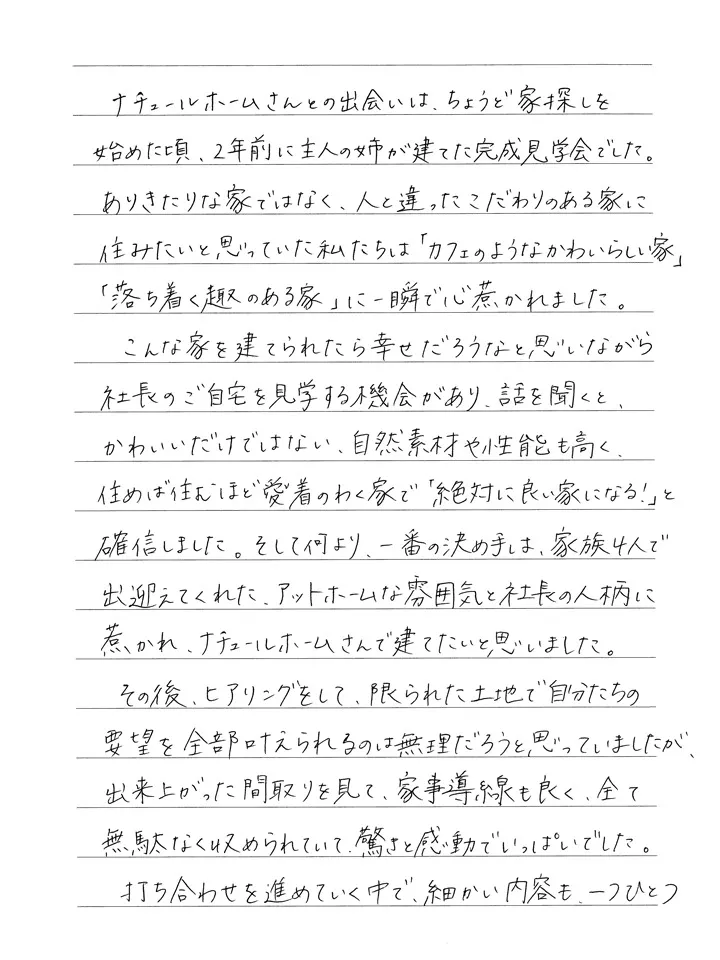 ナチュールホームさんとの出会いは、ちょうど家探しを
始めた頃、2年前に主人の姉が建てた完成見学会でした。
ありきたりな家ではなく、人と違ったこだわりのある家に
住みたいと思っていた私たちは「カフェのようなかわいらしい家」
「落ち着く趣のある家」に一瞬で心惹かれました。
こんな家を建てられたら幸せだろうなと思いながら
社長のご自宅を見学する機会があり、話を聞くと、
かわいいだけではない、自然素材や性能も高く、
住めば住むほど愛着のわく家で「絶対に良い家になる!」と
確信しました。そして何より、一番の決め手は、家族4人で
出迎えてくれた、アットホームな雰囲気と社長の人柄に
惹かれ、ナチュールホームさんで建てたいと思いました。
その後、ヒアリングをして、限られた土地で自分たちの
要望を全部叶えられるのは無理だろうと思っていましたが、
出来上がった間取りを見て、家事導線も良く、全て
無駄なく収められていて、驚きと感動でいっぱいでした。
打ち合わせを進めていく中で、細かい内容も、一つひとつ